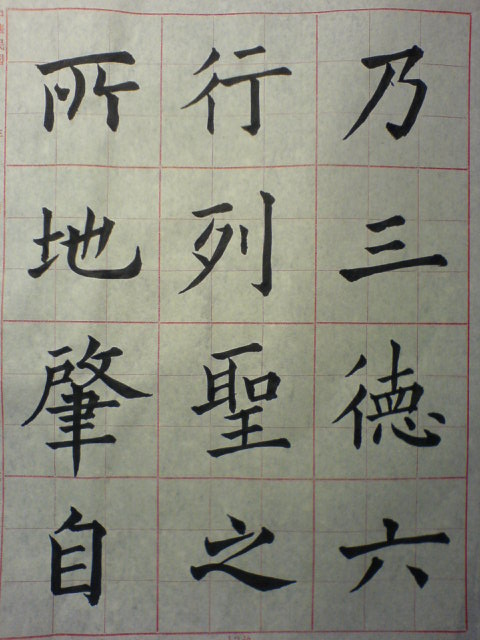 乃三德六
行列聖之
所地肇自